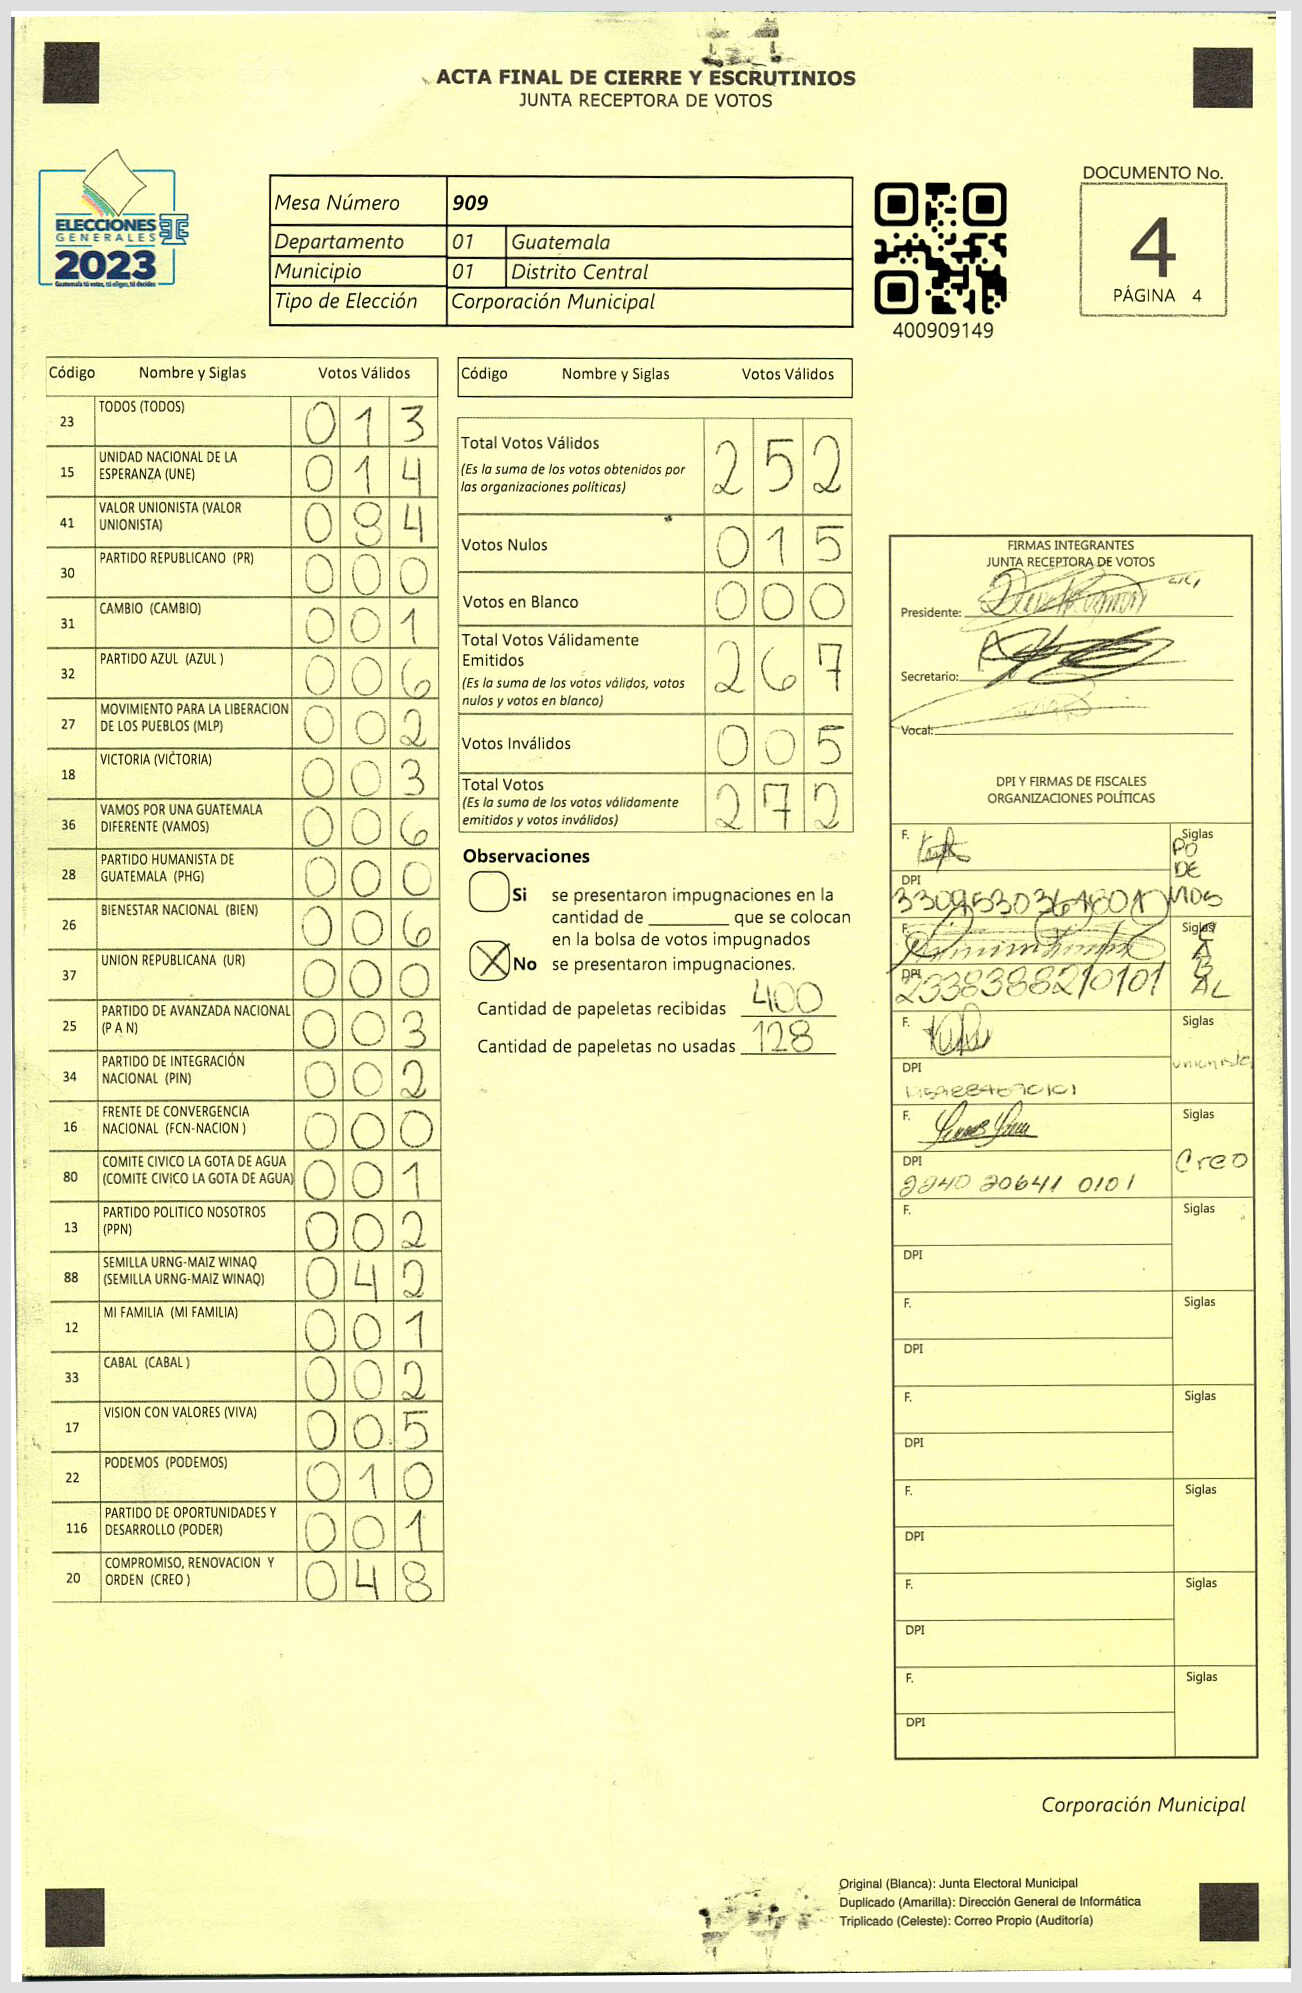 ACTA FINAL DE CIERRE Y ESCRUTINIOS
JUNTA RECEPTORA DE VOTOS
ELECCIONES
GENERALES
2023
Guatemala tú votas, tú eliges, tú decides
Mesa Número 909
Departamento 01 Guatemala
Municipio 01 Distrito Central
Tipo de Elección Corporación Municipal
400909149
DOCUMENTO No.
4
PÁGINA 4
Código Nombre y Siglas Votos Válidos
23 TODOS (TODOS) 013
15 UNIDAD NACIONAL DE LA
ESPERANZA (UNE) 014
41 VALOR UNIONISTA (VALOR
UNIONISTA) 084
30 PARTIDO REPUBLICANO (PR) 000
31 CAMBIO (CAMBIO) 001
32 PARTIDO AZUL (AZUL ) 006
27 MOVIMIENTO PARA LA LIBERACION
DE LOS PUEBLOS (MLP) 002
18 VICTORIA (VICTORIA) 003
36 VAMOS POR UNA GUATEMALA
DIFERENTE (VAMOS) 006
28 PARTIDO HUMANISTA DE
GUATEMALA (PHG) 000
26 BIENESTAR NACIONAL (BIEN) 006
37 UNION REPUBLICANA (UR) 000
25 PARTIDO DE AVANZADA NACIONAL
(P A N) 003
34 PARTIDO DE INTEGRACIÓN
NACIONAL (PIN) 002
16 FRENTE DE CONVERGENCIA
NACIONAL (FCN-NACION ) 000
80 COMITE CIVICO LA GOTA DE AGUA
(COMITE CIVICO LA GOTA DE AGUA) 001
13 PARTIDO POLITICO NOSOTROS
(PPN) 002
88 SEMILLA URNG-MAIZ WINAQ
(SEMILLA URNG-MAIZ WINAQ) 042
12 MI FAMILIA (MI FAMILIA) 001
33 CABAL (CABAL ) 002
17 VISION CON VALORES (VIVA) 005
22 PODEMOS (PODEMOS) 010
116 PARTIDO DE OPORTUNIDADES Y
DESARROLLO (PODER) 001
20 COMPROMISO, RENOVACION Y
ORDEN (CREO ) 048
Código Nombre y Siglas Votos Válidos
Total Votos Válidos 252
(Es la suma de los votos obtenidos por
las organizaciones políticas)
Votos Nulos 015
Votos en Blanco 000
Total Votos Válidamente
Emitidos 267
(Es la suma de los votos válidos, votos
nulos y votos en blanco)
Votos Inválidos 005
Total Votos 272
(Es la suma de los votos válidamente
emitidos y votos inválidos)
Observaciones
Si se presentaron impugnaciones en la
cantidad de ________ que se colocan
en la bolsa de votos impugnados
X No se presentaron impugnaciones.
Cantidad de papeletas recibidas 400
Cantidad de papeletas no usadas 128
FIRMAS INTEGRANTES
JUNTA RECEPTORA DE VOTOS
Presidente:
Secretario:
Vocal:
DPI Y FIRMAS DE FISCALES
ORGANIZACIONES POLÍTICAS
F. Siglas
PO
DE
MOS
DPI
F. Siglas
CA
B
AL
DPI
2338388210101
F. Siglas
unionista
DPI
F. Siglas
Creo
DPI
2240 20641 0101
F. Siglas
DPI
F. Siglas
DPI
F. Siglas
DPI
F. Siglas
DPI
F. Siglas
DPI
F. Siglas
DPI
Corporación Municipal
Original (Blanca): Junta Electoral Municipal
Duplicado (Amarilla): Dirección General de Informática
Triplicado (Celeste): Correo Propio (Auditoría)